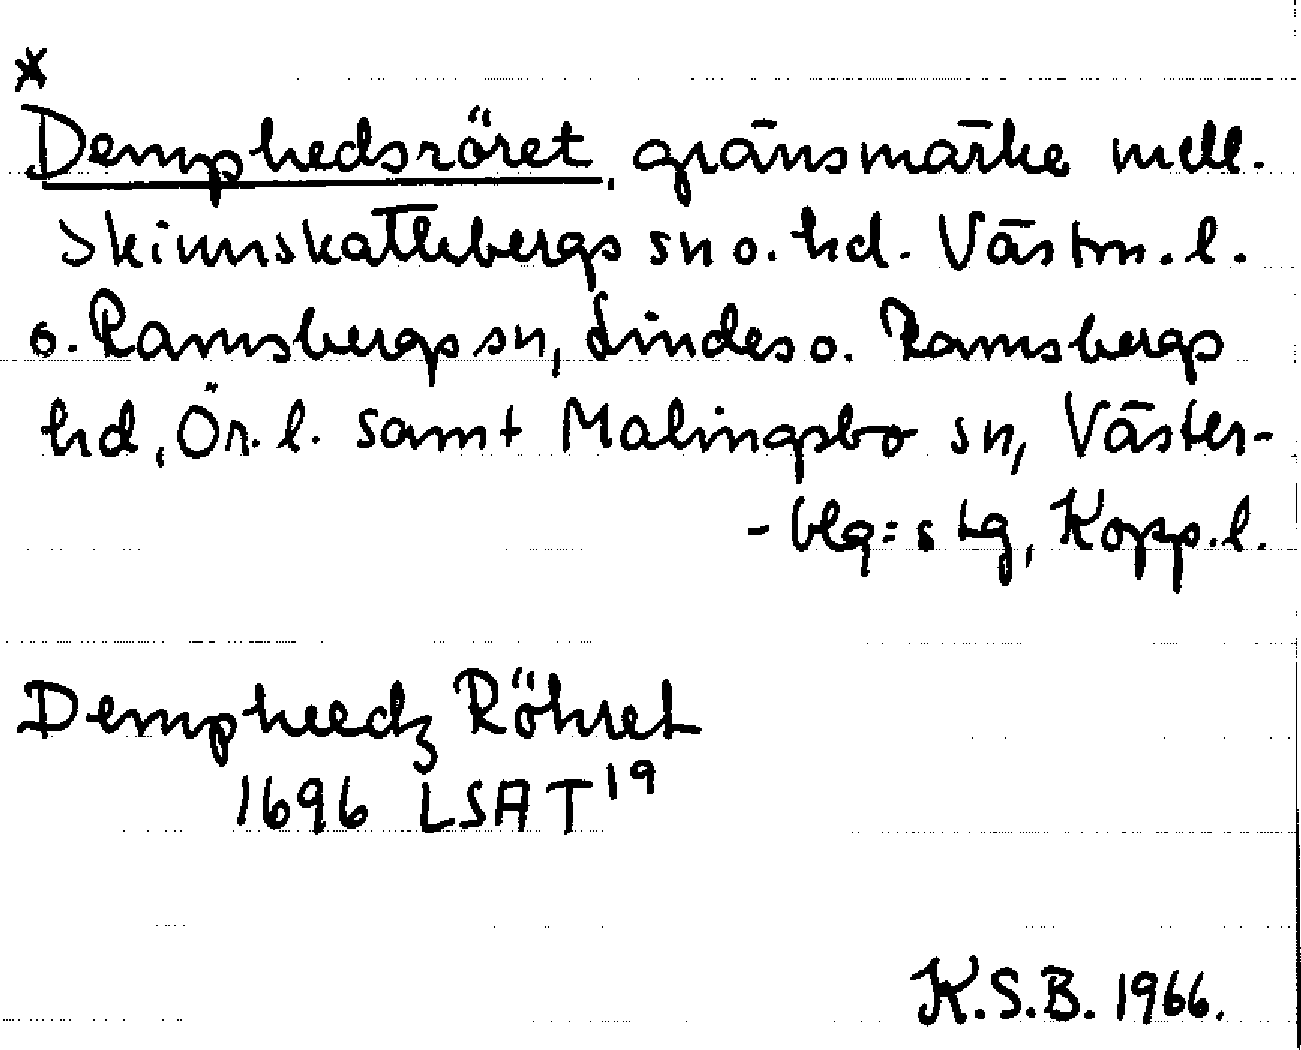 *
Demphedsröret, gränsmärke mell.
Skinnskattebergs sn o. hd. Västm. l.
o. Ramsbergs sn, Lindes o. Ramsbergs
hd, Ör. l. samt Malingsbo sn, Väster-
-blg:s tg, Kopp. l.
Dempheedz Röhret
1696 LSA T19
K.S.B. 1966.